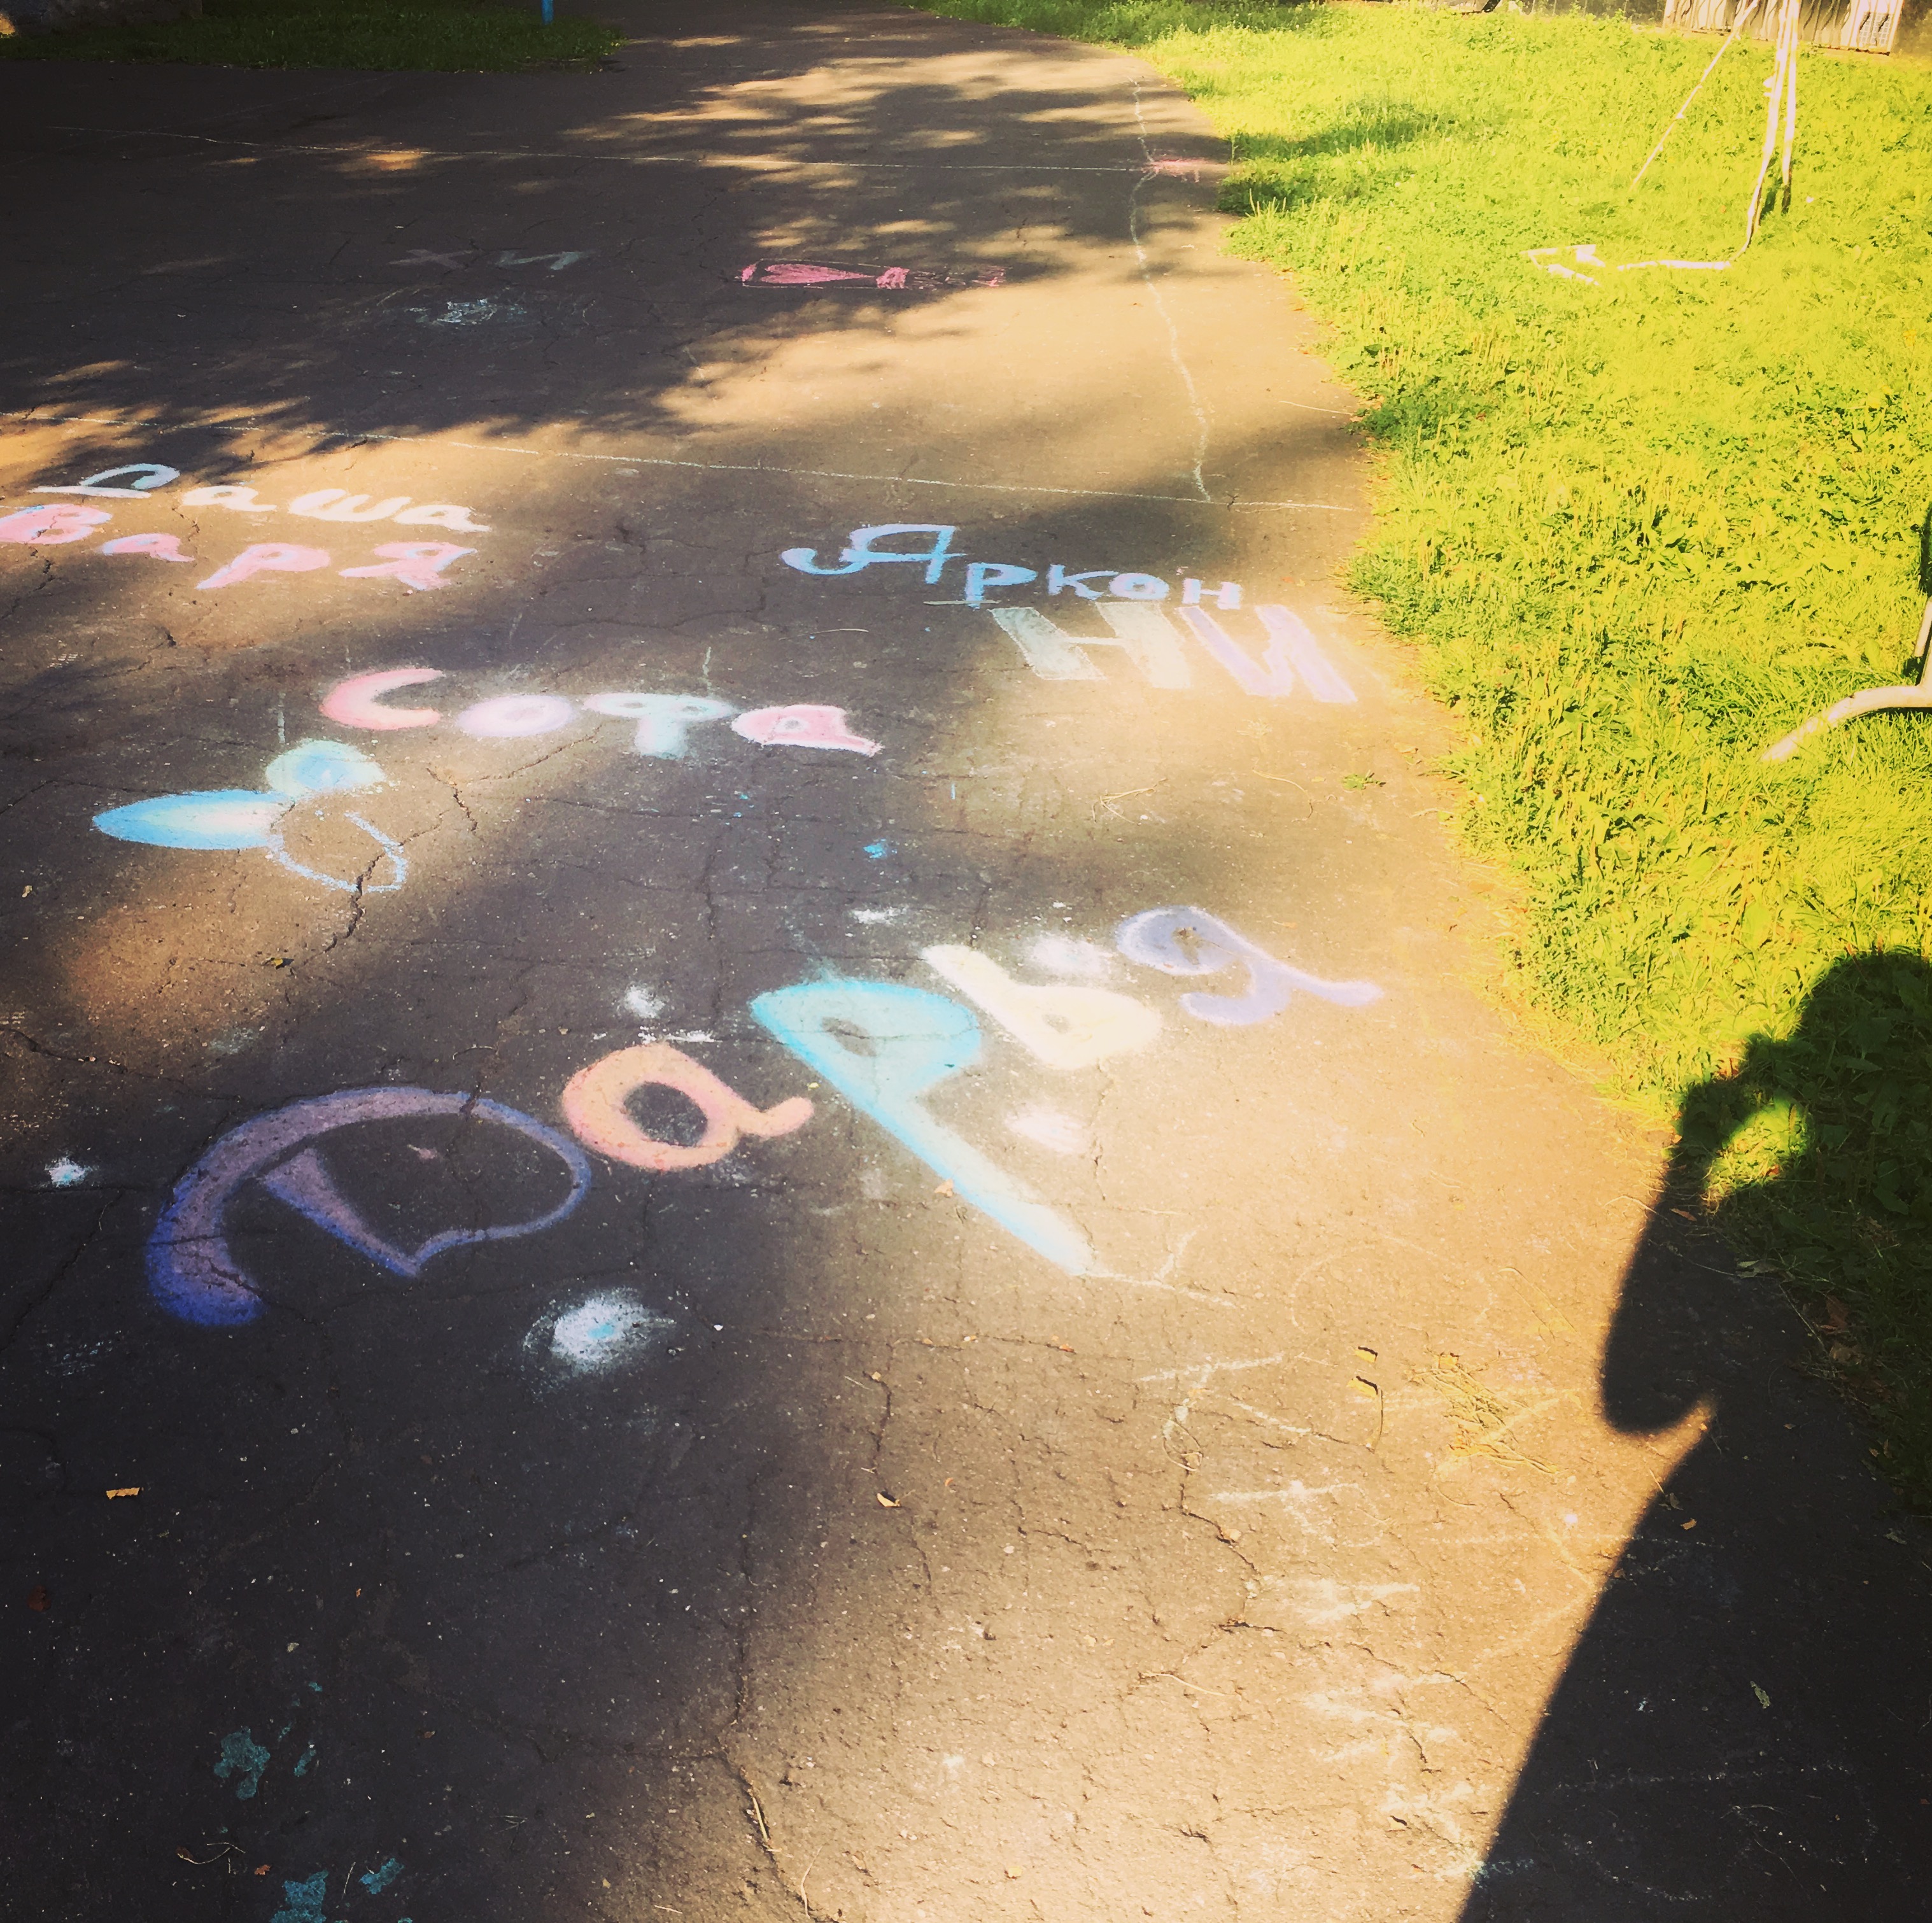 Даша
Варя
Яркон
НИ
Софа
Дарья